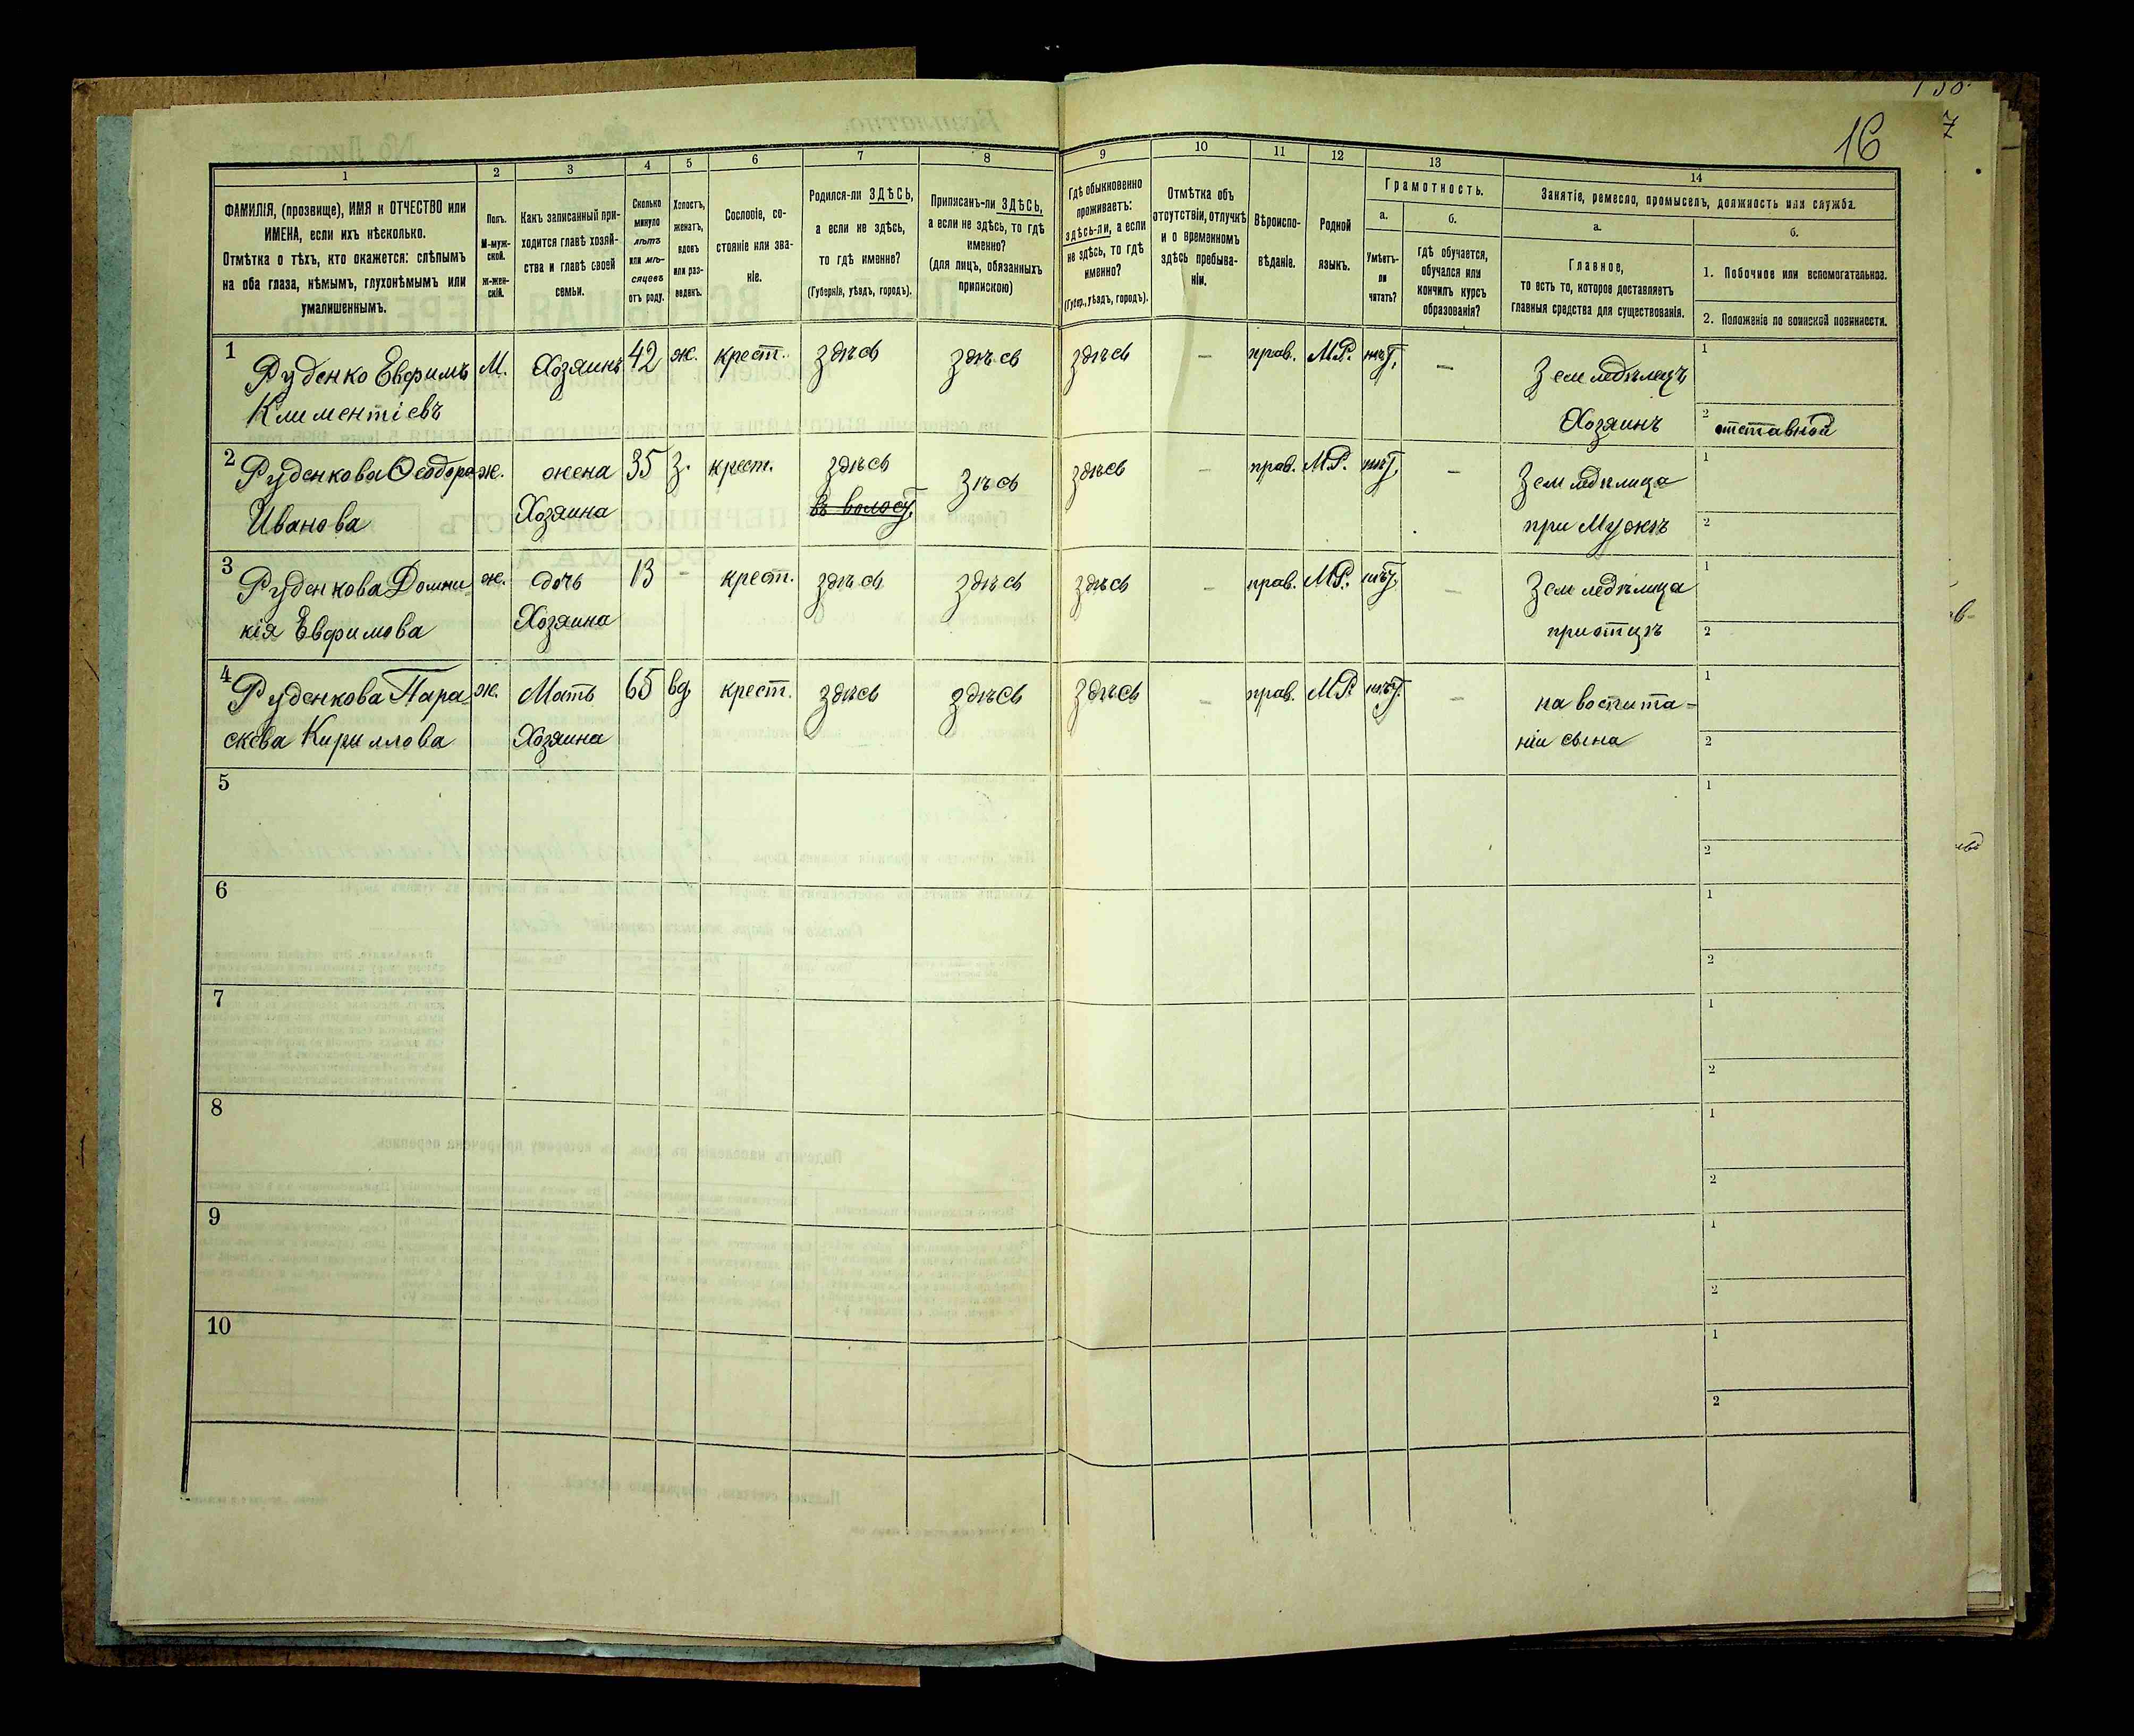 16
7
1 2 3 4 5 6 7 8 9 10 11 12 13 14
ФАМИЛІЯ, (прозвище), ИМЯ и ОТЧЕСТВО или
ИМЕНА, если ихъ нѣсколько.
Отмѣтка о тѣхъ, кто окажется: слѣпымъ
на оба глаза, нѣмымъ, глухонѣмымъ или
умалишеннымъ.
Полъ.
М-муж-
ской.
Ж-жен-
скій.
Какъ записанный при-
ходится главѣ хозяй-
ства и главѣ своей
семьи.
Сколько
минуло
лѣтъ
или мѣ-
сяцевъ
отъ роду.
Холостъ,
женатъ,
вдовъ
или раз-
веденъ.
Сословіе, со-
стояніе или зва-
ніе.
Родился-ли ЗДѢСЬ,
а если не здѣсь,
то гдѣ именно?
(Губернія, уѣздъ, городъ).
Приписанъ-ли ЗДѢСЬ,
а если не здѣсь, то гдѣ
именно?
(для лицъ, обязанныхъ
припискою)
Гдѣ обыкновенно
проживаетъ:
здѣсь-ли, а если
не здѣсь, то гдѣ
именно?
(Губер., уѣздъ, городъ).
Отмѣтка объ
отсутствіи, отлучкѣ
и о временномъ
здѣсь пребыва-
ніи.
Вѣроиспо-
вѣданіе.
Родной
языкъ.
Грамотность.
а.
Умѣетъ-
ли
читать?
б.
гдѣ обучается,
обучался или
кончилъ курсъ
образованія?
Занятіе, ремесло, промыселъ, должность или служба.
а.
Главное,
то есть то, которое доставляетъ
главныя средства для существованія.
б.
1. Побочное или вспомогательное.
2. Положеніе по воинской повинности.
1 Руденко Евфимъ М. Хозяинъ 42 ж. крест. здѣсь здѣсь здѣсь — прав. М.Р. нѣт. — Земледѣлецъ 1
Климентіевъ Хозяинъ 2 отставной
2 Руденкова Ѳеодора ж. жена 35 З. крест. здѣсь Зѣсь здѣсь — прав. М.Р. нѣт. — Земледѣлица 1
Иванова Хозяина въ волост. при Мужѣ 2
3 Руденкова Домни- ж. дочь 13 - крест. здѣсь здѣсь здѣсь — прав. М.Р. нѣт. — Земледѣлица 1
кія Евфимова Хозяина при отцѣ 2
4 Руденкова Пара- ж. Мать 65 вд. крест. здѣсь здѣсь здѣсь — прав. М.Р. нѣт. — на воспита- 1
скева Кириллова Хозяина ніи сына 2
5 1
2
6 1
2
7 1
2
8 1
2
9 1
2
10 1
2